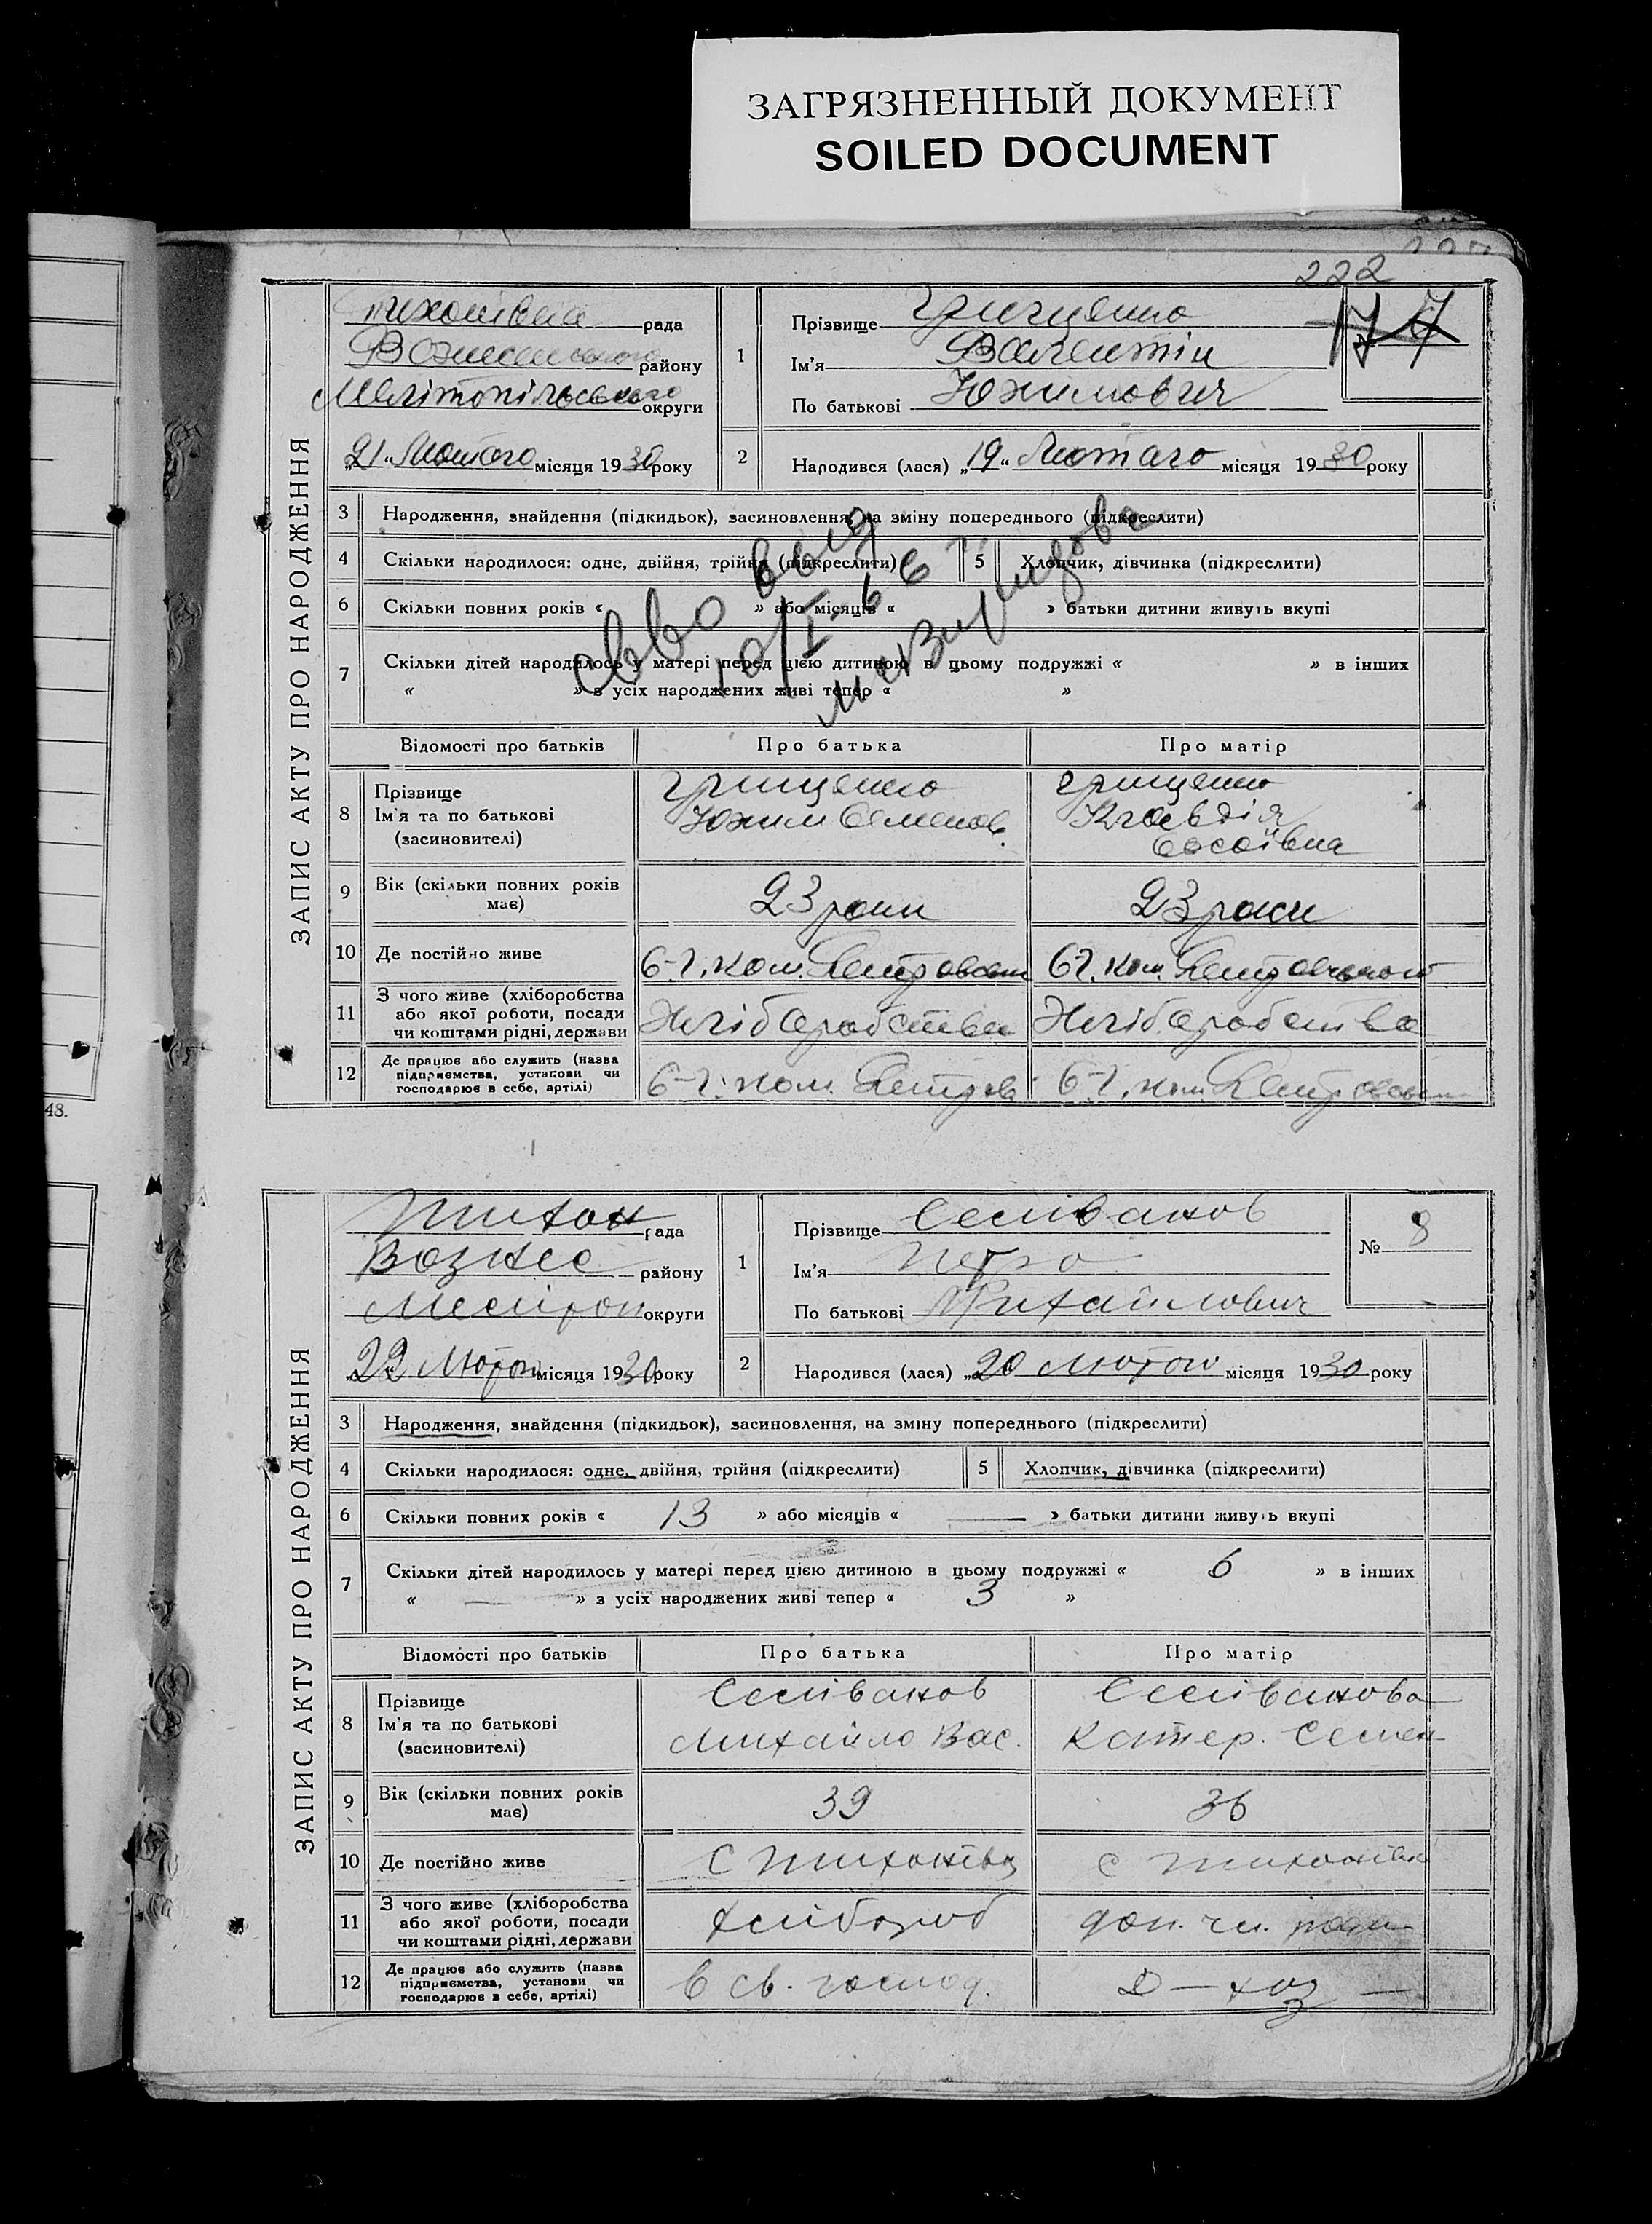 ЗАГРЯЗНЕННЫЙ ДОКУМЕНТ
SOILED DOCUMENT
222
ЗАПИС АКТУ ПРО НАРОДЖЕННЯ
рада
району
Мелітопільського округи
„21“ Лютого місяця 1930 року
1
Прізвище Грищенко
Ім'я Валентін
По батькові Юхимович
17 7
2
Народився (лася) „19“ Лютого місяця 1930 року
3 Народження, знайдення (підкидьок), засиновлення, на зміну попереднього (підкреслити)
4 Скільки народилося: одне, двійня, трійня (підкреслити) 5 Хлопчик, дівчинка (підкреслити)
6 Скільки повних років « » або місяців « » батьки дитини живуть вкупі
7 Скільки дітей народилось у матері перед цією дитиною в цьому подружжі « » в інших
« » з усіх народжених живі тепер « »
Відомості про батьків Про батька Про матір
8 Прізвище Ім'я та по батькові (засиновителі)
Грищенко Юхим Семенов.
Грищенко Клавдія
9 Вік (скільки повних років має) 23 роки 23 роки
10 Де постійно живе
11 З чого живе (хліборобства або якої роботи, посади чи коштами рідні, держави Хліборобства Хліборобства
12 Де працює або служить (назва підприємства, установи чи господарює в себе, артілі)
48.
ЗАПИС АКТУ ПРО НАРОДЖЕННЯ
Тихон рада
Вознес району
Меліроп округи
„22 Лютого місяця 1930 року
1
Прізвище Селіванов
Ім'я Петро
По батькові Михайлович
№ 8
2
Народився (лася) „20 Лютого місяця 1930 року
3 Народження, знайдення (підкидьок), засиновлення, на зміну попереднього (підкреслити)
4 Скільки народилося: одне, двійня, трійня (підкреслити) 5 Хлопчик, дівчинка (підкреслити)
6 Скільки повних років « 13 » або місяців « — » батьки дитини живуть вкупі
7 Скільки дітей народилось у матері перед цією дитиною в цьому подружжі « 6 » в інших
« — » з усіх народжених живі тепер « 3 »
Відомості про батьків Про батька Про матір
8 Прізвище Ім'я та по батькові (засиновителі)
Селіванов Михайло Вас.
Селіванова Катер. Семен
9 Вік (скільки повних років має) 39 36
10 Де постійно живе С Тихонівка с Тихонівка
11 З чого живе (хліборобства або якої роботи, посади чи коштами рідні, держави Хлібороб доп. чл.
12 Де працює або служить (назва підприємства, установи чи господарює в себе, артілі) в св. господ. Д — хоз —